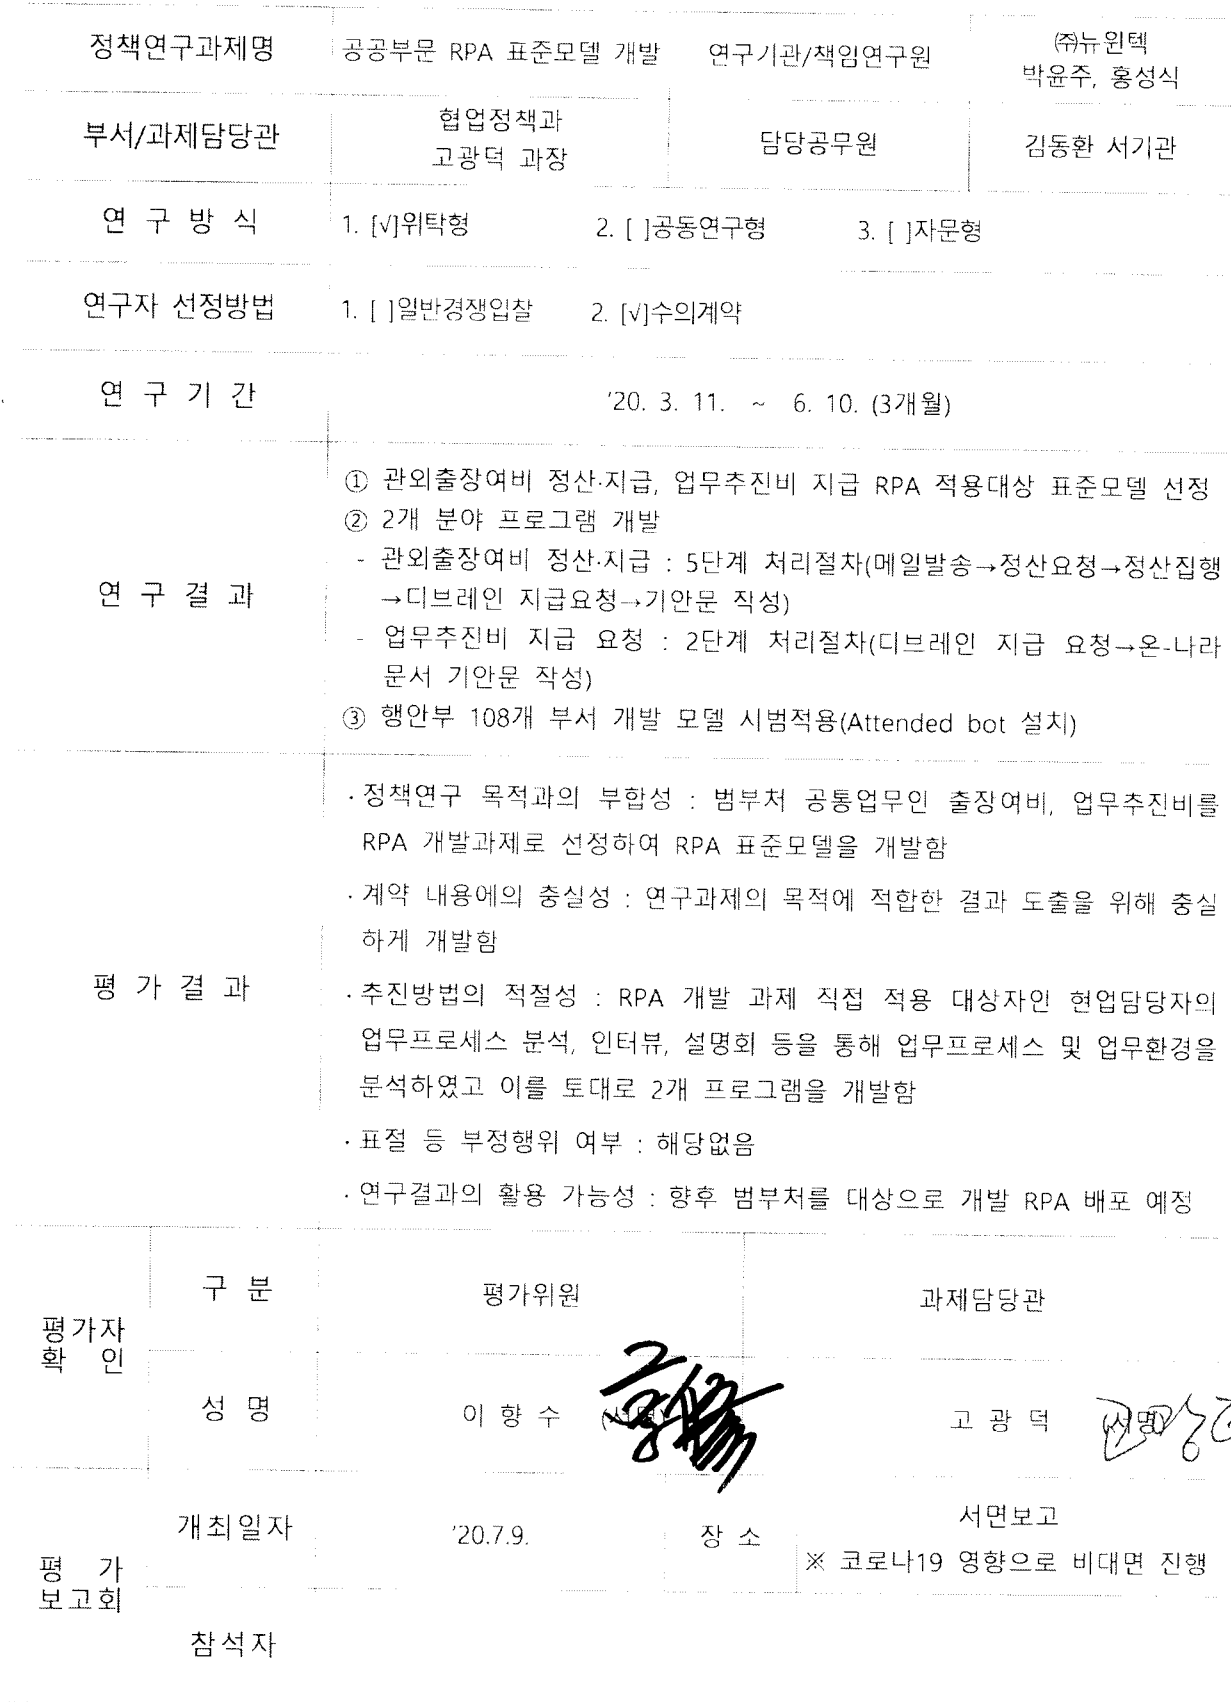 정책연구과제명 공공부문 RPA 표준모델 개발 연구기관/책임연구원 ㈜뉴윈텍
박윤주, 홍성식
부서/과제담당관 협업정책과 담당공무원 김동환 서기관
고광덕 과장
연 구 방 식 1. [√]위탁형 2. [ ]공동연구형 3. [ ]자문형
연구자 선정방법 1. [ ]일반경쟁입찰 2. [√]수의계약
연 구 기 간 '20. 3. 11. ~ 6. 10. (3개월)
연 구 결 과
① 관외출장여비 정산·지급, 업무추진비 지급 RPA 적용대상 표준모델 선정
② 2개 분야 프로그램 개발
- 관외출장여비 정산·지급 : 5단계 처리절차(메일발송→정산요청→정산집행
→디브레인 지급요청→기안문 작성)
- 업무추진비 지급 요청 : 2단계 처리절차(디브레인 지급 요청→온-나라
문서 기안문 작성)
③ 행안부 108개 부서 개발 모델 시범적용(Attended bot 설치)
평 가 결 과
· 정책연구 목적과의 부합성 : 범부처 공통업무인 출장여비, 업무추진비를
RPA 개발과제로 선정하여 RPA 표준모델을 개발함
· 계약 내용에의 충실성 : 연구과제의 목적에 적합한 결과 도출을 위해 충실
하게 개발함
· 추진방법의 적절성 : RPA 개발 과제 직접 적용 대상자인 현업담당자의
업무프로세스 분석, 인터뷰, 설명회 등을 통해 업무프로세스 및 업무환경을
분석하였고 이를 토대로 2개 프로그램을 개발함
· 표절 등 부정행위 여부 : 해당없음
· 연구결과의 활용 가능성 : 향후 범부처를 대상으로 개발 RPA 배포 예정
평가자
확 인
구 분 평가위원 과제담당관
성 명 이 향 수 (서명) 고 광 덕 (서명)
평 가
보고회
개최일자 '20.7.9. 장 소 서면보고
※ 코로나19 영향으로 비대면 진행
참석자